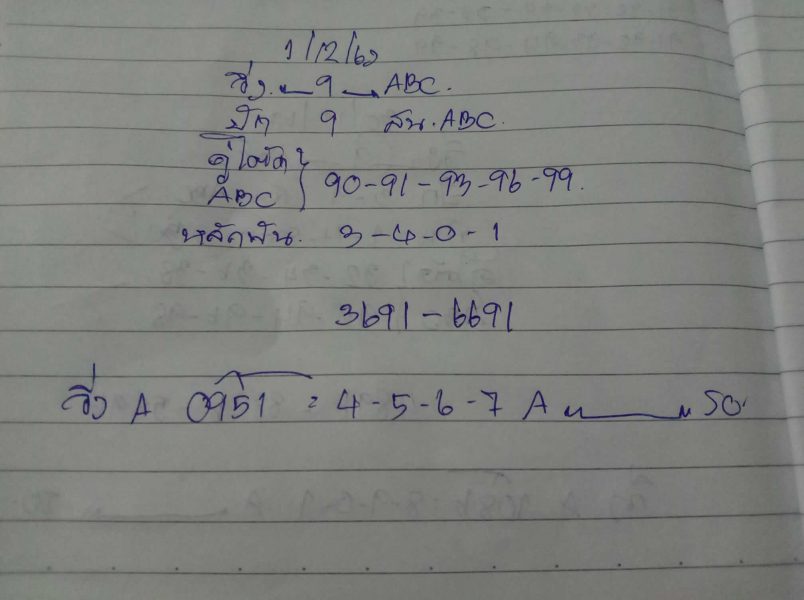 1/12/62
วิ่ง. 9 ABC.
ปัก 9 ลบน. ABC.
ABC } 90-91-93-96-99.
หลักพัน. 3-4-0-1
3691-6691
วิ่ง A 0951 = 4-5-6-7 A 50.